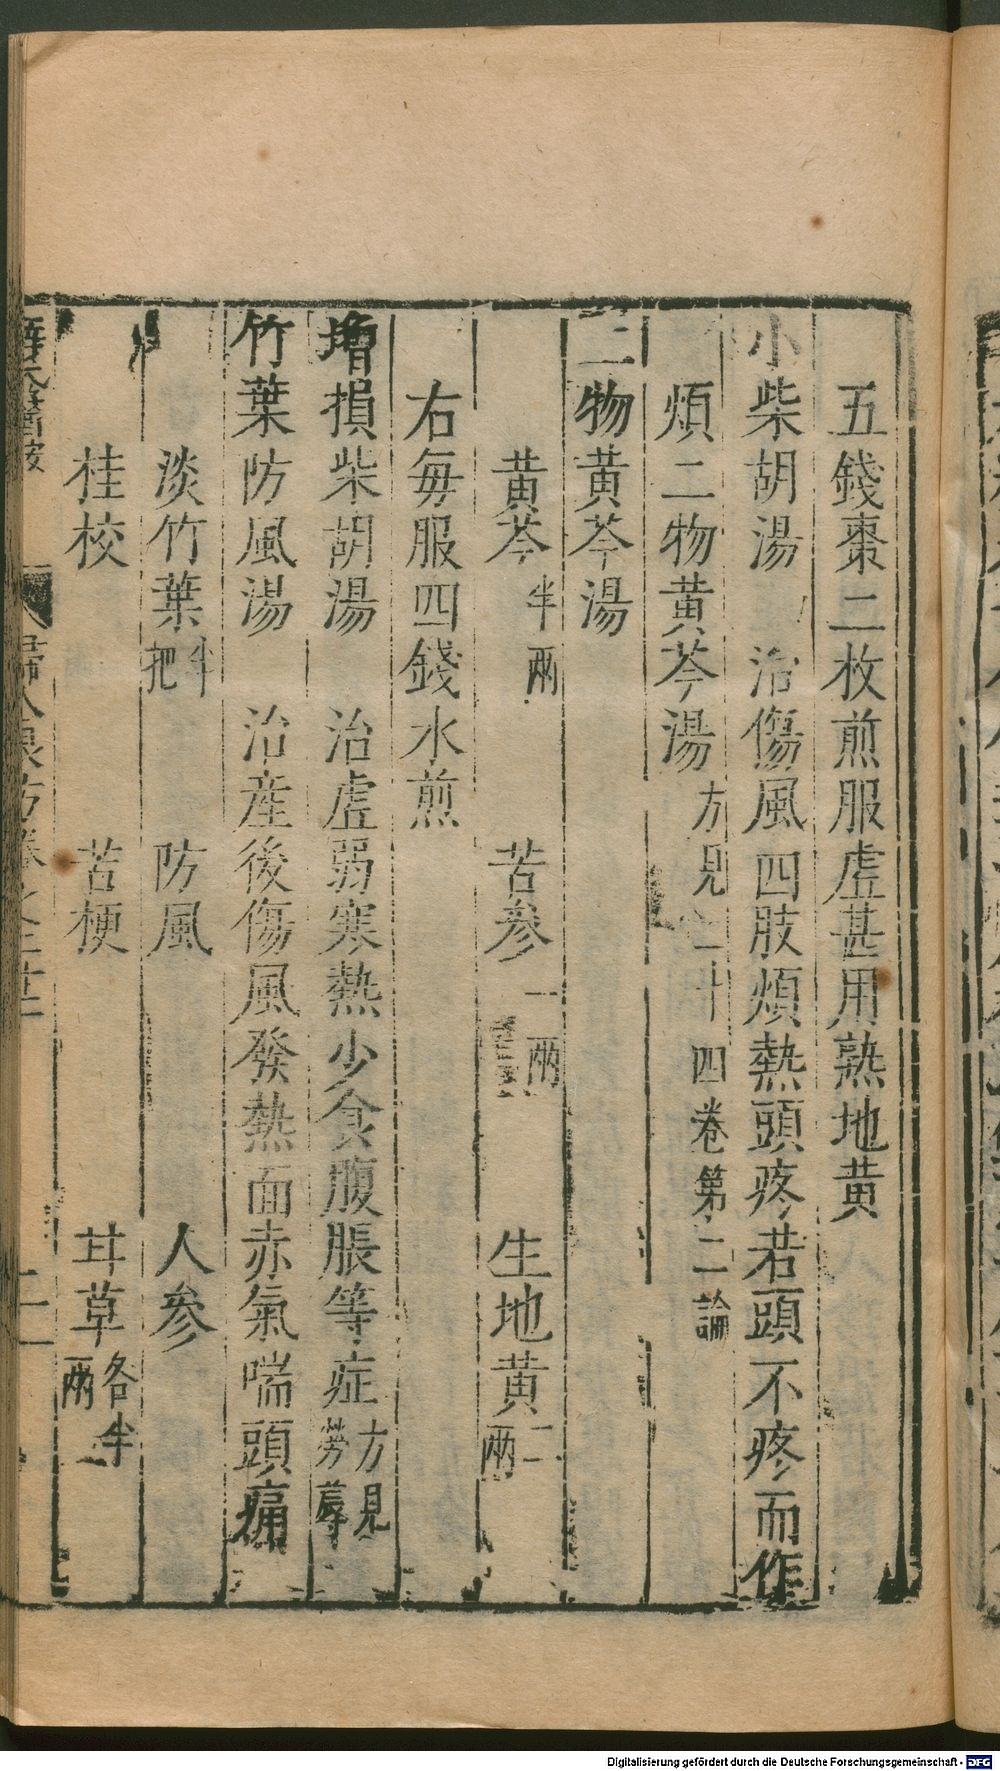 五錢棗二枚煎服虛甚用熟地黃
小柴胡湯 治傷風四肢煩熱頭疼若頭不疼而作
煩二物黃芩湯方見二十四卷第二論
二物黃芩湯
黃芩半兩 苦參一兩 生地黃二兩
右每服四錢水煎
增損柴胡湯 治虛弱寒熱少食腹脹等症方見勞蓐
竹葉防風湯 治產後傷風發熱面赤氣喘頭痛
淡竹葉半把 防風 人參
桂校 苦梗 甘草各半兩
婦人良方卷之二
Digitalisierung gefördert durch die Deutsche Forschungsgemeinschaft - DFG